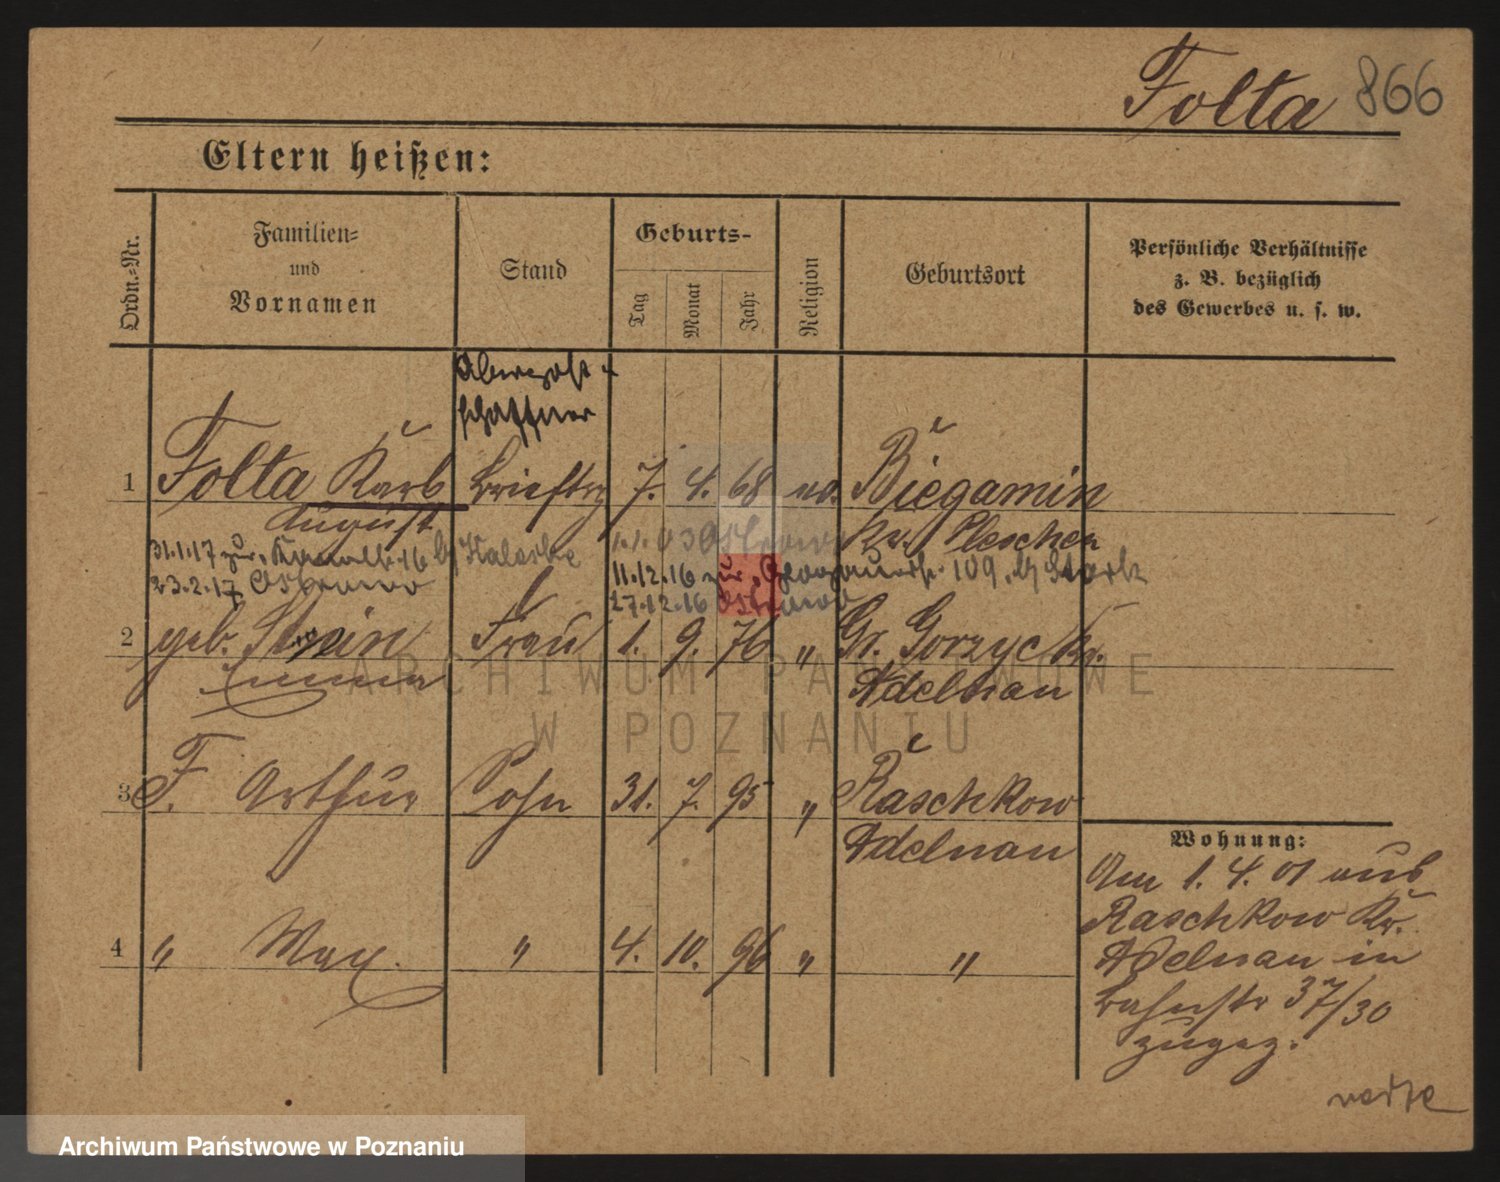 Folta 866
Eltern heißen:
Ordn.=Nr.
Familien=
und
Vornamen
Stand
Geburts-
Tag
Monat
Jahr
Religion
Geburtsort
Persönliche Verhältnisse
z. B. bezüglich
des Gewerbes u. s. w.
schaffner
1 Folta Karl Brieftrg 7. 4. 68 ev. Biegamin
August Kr. Pleschen
31.1.17 zur
11.12.16 zur 109
23.2.17 Ostrowo
27.12.16 Ostrowo
2 geb. Frau 1. 9. 76 " Gr. Gorzyc Kr.
Emma Adelnau
3 F. Arthur Sohn 31. 7. 95 " Raschkow
Adelnau
4 " Max. " 4. 10. 96 " "
Wohnung:
Am 1. 4. 01 aus
Raschkow Kr.
Adelnau in
Bahnstr 37/30
zugez.
ARCHIWUM PAŃSTWOWE
W POZNANIU
Archiwum Państwowe w Poznaniu